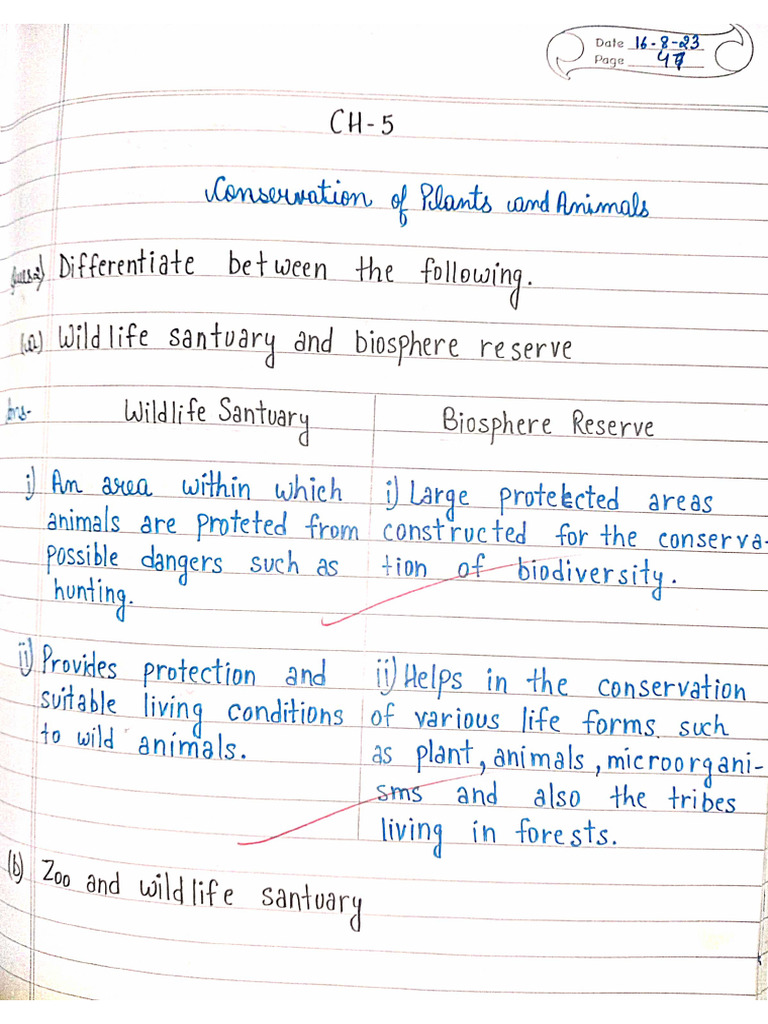 Date 16-8-23
Page 47
CH-5
Conservation of Plants and Animals
Ques2) Differentiate between the following.
(a) Wildlife santuary and biosphere reserve
Ans- Wildlife Santuary
Biosphere Reserve
i) An area within which
animals are proteted from
possible dangers such as
hunting.
i) Large protected areas
constructed for the conserva-
tion of biodiversity.
ii) Provides protection and
suitable living conditions
to wild animals.
ii) Helps in the conservation
of various life forms such
as plant, animals, microorgani-
sms and also the tribes
living in forests.
(b) Zoo and wildlife santuary